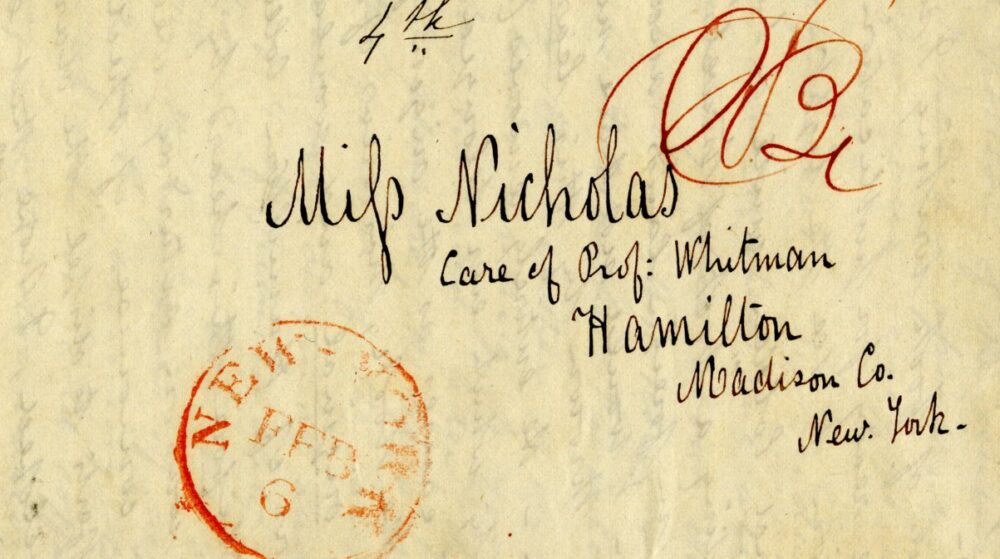 4th
Miſs Nicholas
Care of Prof: Whitman
Hamilton
Madison Co.
New. York.
NEW-YORK
FEB
6